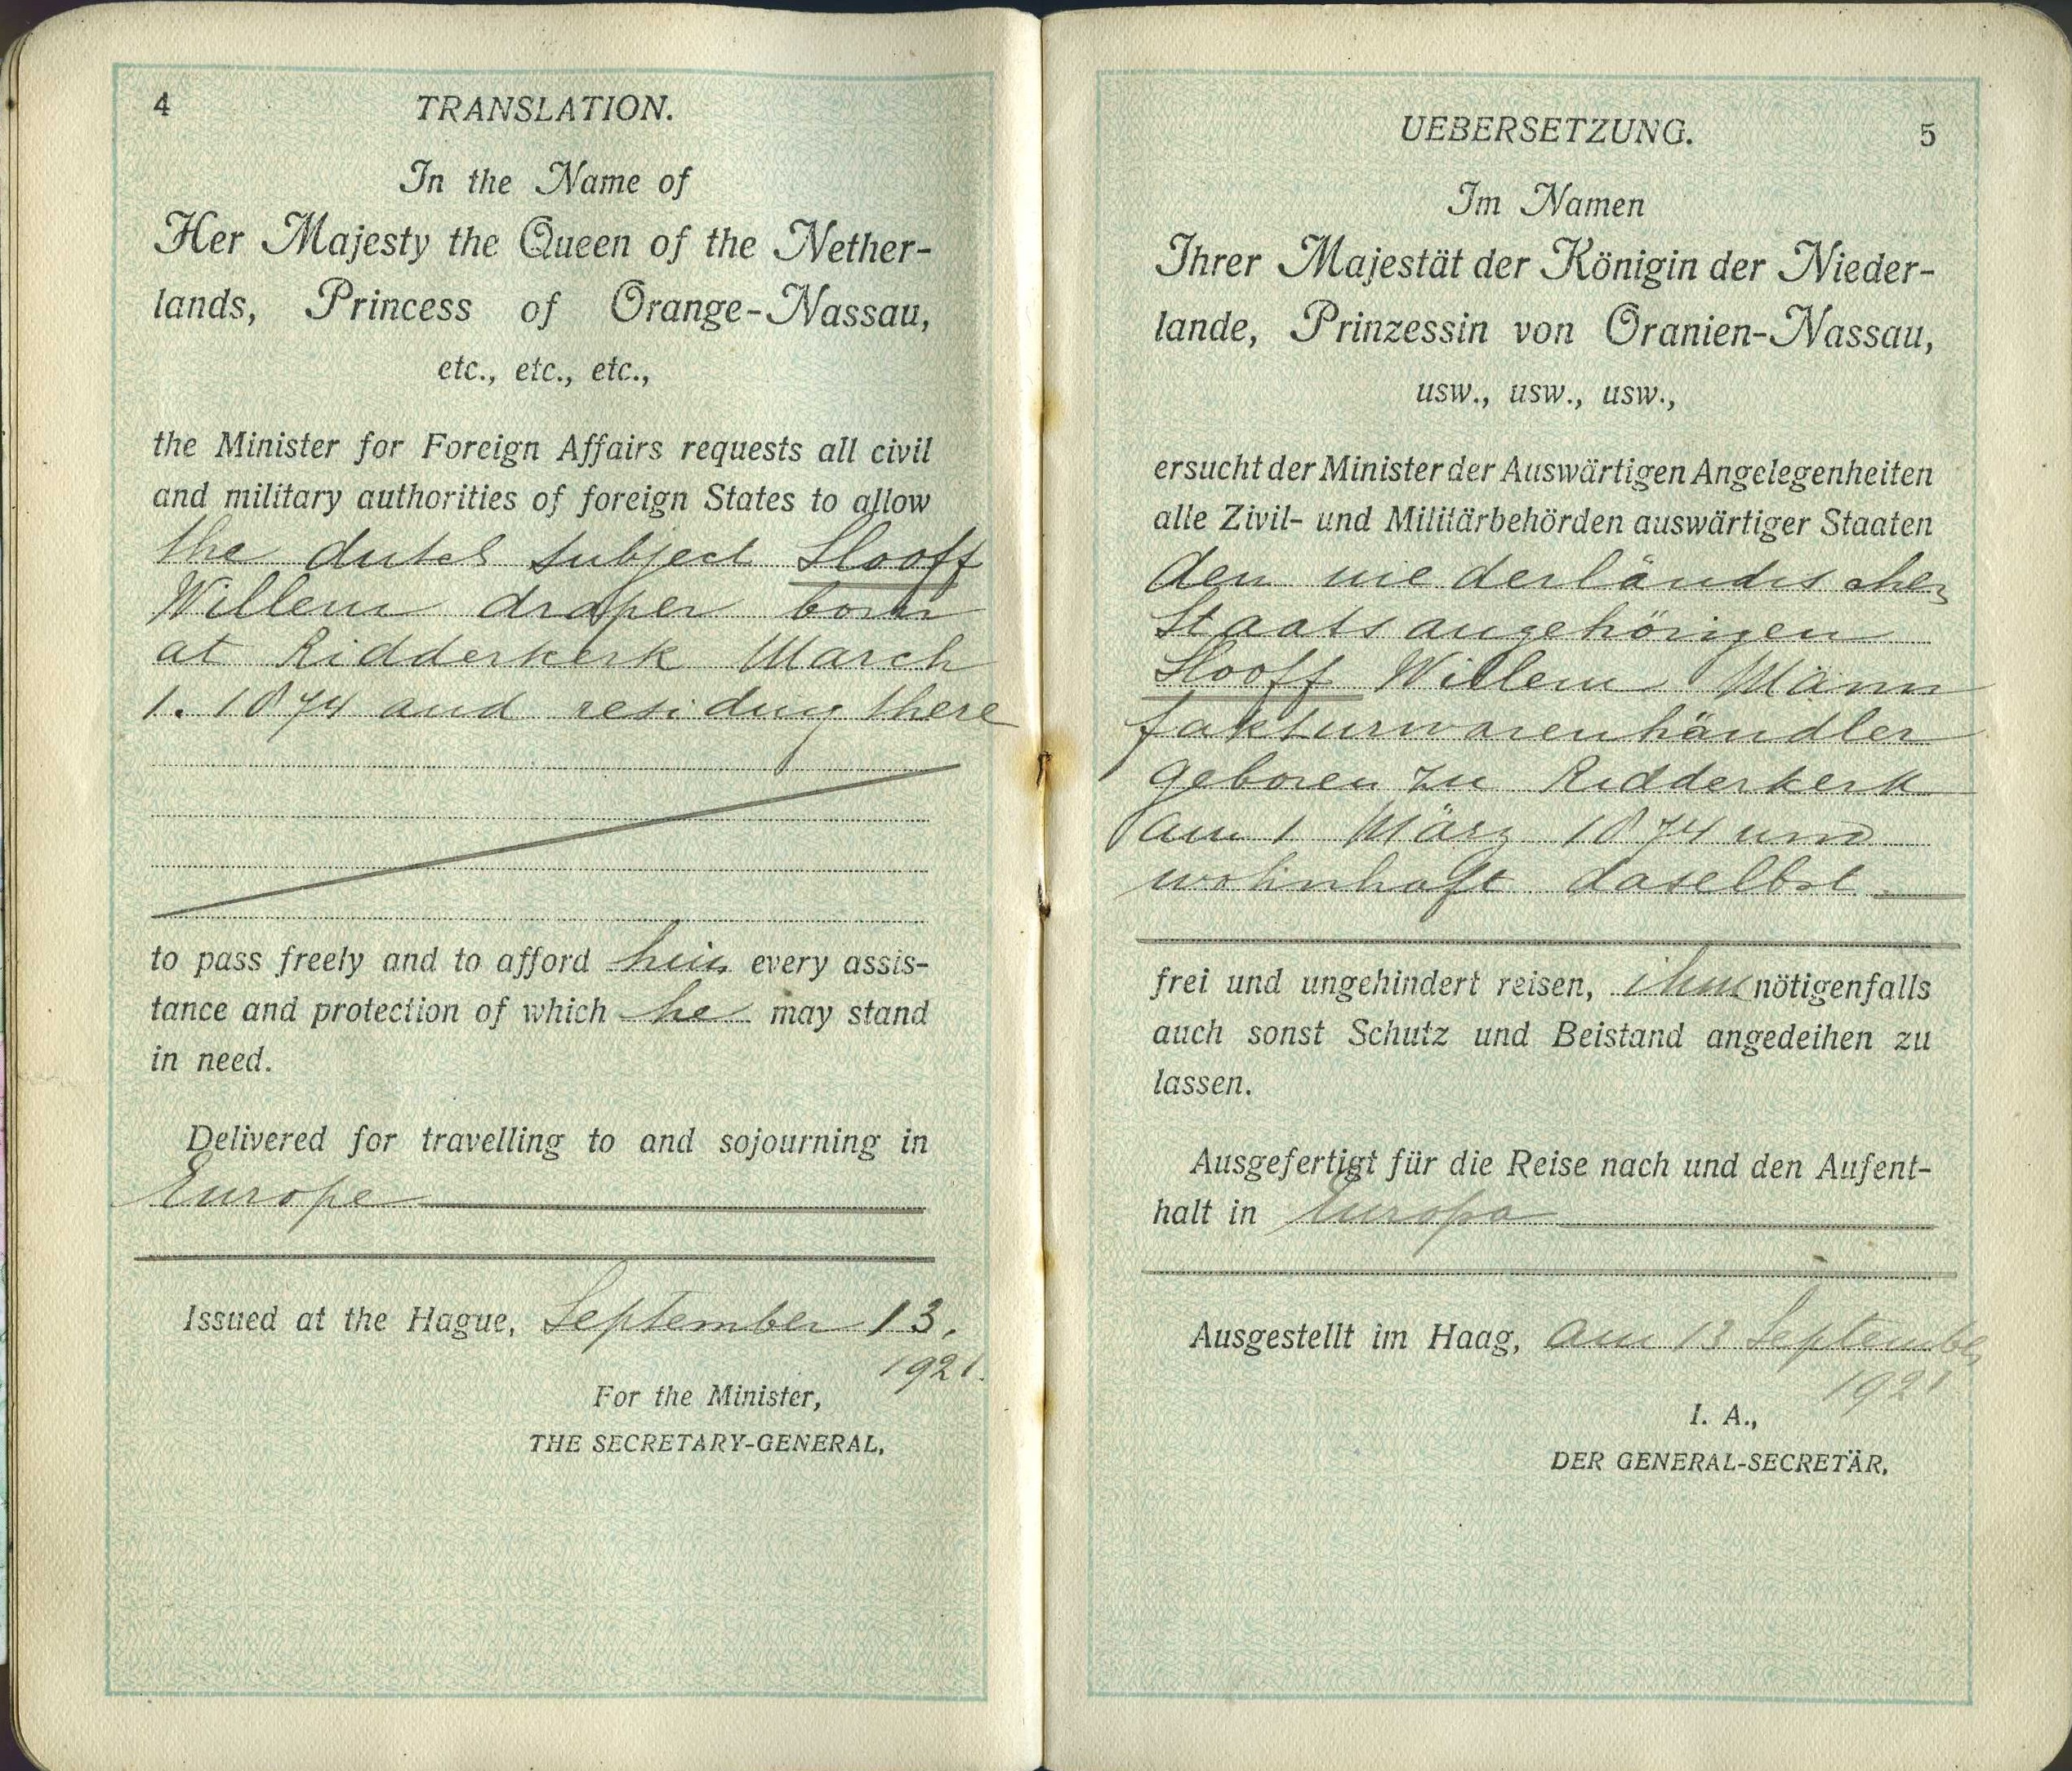 4
TRANSLATION.
In the Name of
Her Majesty the Queen of the Nether-
lands, Princess of Orange-Nassau,
etc., etc., etc.,
the Minister for Foreign Affairs requests all civil
and military authorities of foreign States to allow
the dutch subject Slooff
Willem draper born
at Ridderkerk March
1. 1874 and residing there
to pass freely and to afford him every assis-
tance and protection of which he may stand
in need.
Delivered for travelling to and sojourning in
Europe
Issued at the Hague, September 13,
1921.
For the Minister,
THE SECRETARY-GENERAL,
UEBERSETZUNG.
5
Im Namen
Ihrer Majestät der Königin der Nieder-
lande, Prinzessin von Oranien-Nassau,
usw., usw., usw.,
ersucht der Minister der Auswärtigen Angelegenheiten
alle Zivil- und Militärbehörden auswärtiger Staaten
den niederländischen
Staatsangehörigen
Slooff Willem Mann
fakturwarenhändler
geboren zu Ridderkerk
am 1 März 1874 und
wohnhaft daselbst
frei und ungehindert reisen, ihm nötigenfalls
auch sonst Schutz und Beistand angedeihen zu
lassen.
Ausgefertigt für die Reise nach und den Aufent-
halt in Europa
Ausgestellt im Haag, am 13 September
1921
I. A.,
DER GENERAL-SECRETÄR,